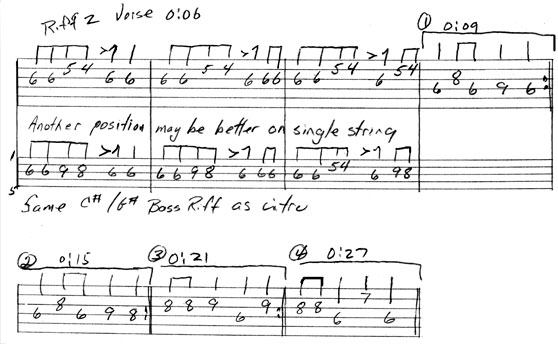 Riff 2 Voise 0:06 ① 0:09
6 6 5 4 6 6 6 6 5 4 6 6 6 6 6 5 4 6 5 4 6 8 6 9 6
Another position may be better on single string
1 6 6 9 8 6 6 6 6 9 8 6 6 6 6 6 5 4 6 9 8
5
Same C# / G# Bass Riff as intro
② 0:15 ③ 0:21 ④ 0:27
6 8 6 9 8 8 8 9 6 9 8 8 6 7 6